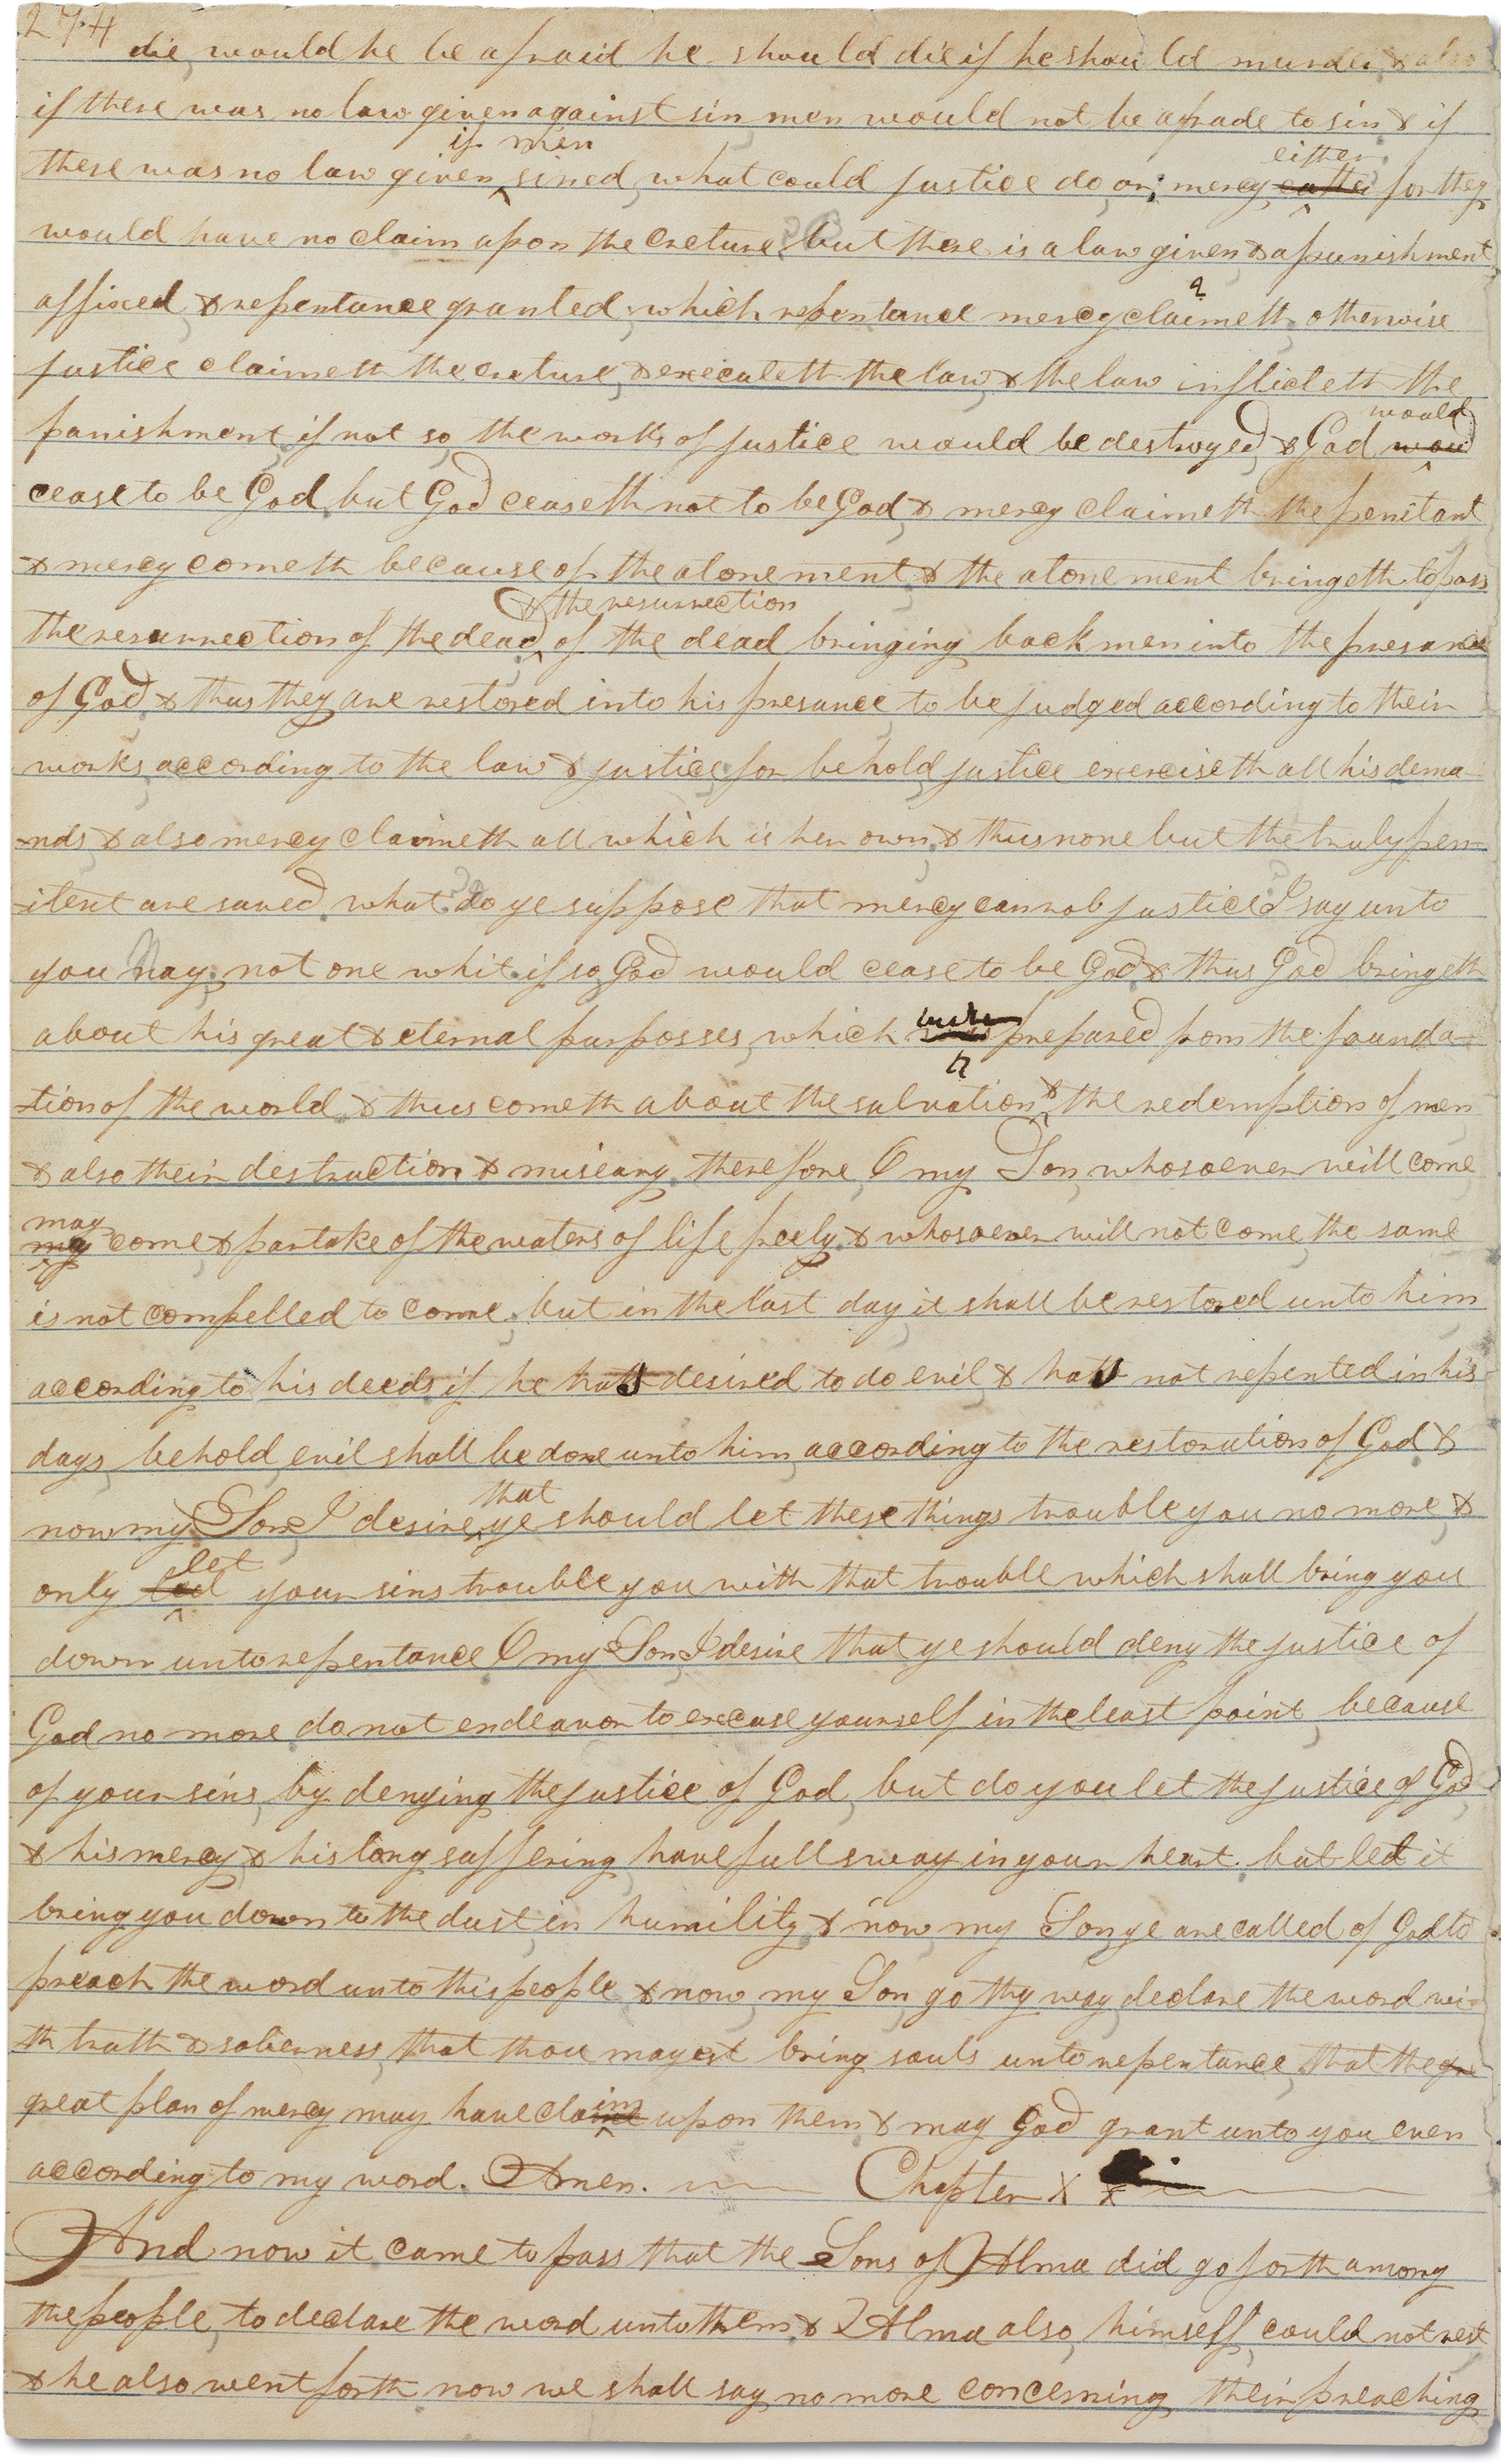 274
die, would he be afraid he should die if he should murder, & also
if there was no law given against sin men would not be afrade to sin & if
if men
either
there was no law given, sined, what could justice do or, mercy eather for they
would have no claim upon the creture, but there is a law given & a punishment
affixed, & repentance granted, which repentance mercy claimeth, otherwise
justice claimeth the creture, & executeth the law, & the law inflicteth the
would
punishment, if not so, the works of justice would be destroyed, & God woud
cease to be God, but God ceaseth not to be God, & mercy claimeth the penitant
& mercy cometh because of the atonement, & the atonement bringeth to pass
& the resurrection
the resurrection of the dead, of the dead bringing back men into the presance
of God, & thus they are restored into his presance, to be judged according to their
works, according to the law & justice, for behold, justice exerciseth all his dema-
-nds, & also mercy claimeth all which is her own, & thus none but the truly pen-
-itent are saved. what do ye suppose that mercy can rob justice I say unto
you Nay, not one whit. if so, God would cease to be God, & thus God bringeth
were
about his great & eternal purposses, which prepared from the founda-
-tion of the world, & thus cometh about the salvation & the redemption of men
& also their destruction & miseary, therefore, O my Son, whosoever will come
may
my come & partake of the waters of life freely, & whosoever will not come, the same
is not compelled to come, but in the last day, it shall be restored unto him
according to his deeds, if he hath desired to do evil, & hath not repented in his
days, behold, evil shall be done unto him, according to the restoration of God &
that
now my Son I desire, ye should let these things trouble you no more, &
let
only led your sins trouble you with that trouble which shall bring you
down unto repentance O my Son, I desire that ye should deny the justice of
God no more. do not endeavor to excuse yourself in the least point, because
of your sins, by denying the justice of God, but do you let the justice of God
& his mercy, & his long suffering, have full sway in your heart. but let it
bring you down to the dust in humility, & now my Son, ye are called of God to
preach the word unto this people, & now, my Son, go thy way, declare the word wi-
th truth & soberness, that thou mayest bring souls unto repentance, that the gre
im
great plan of mercy may have claime upon them, & may God grant unto you even
according to my word. Amen. Chapter X
And now it came to pass that the Sons of Alma did go forth among
the people, to declare the word unto them, & Alma also, himself, could not rest
& he also went forth now we shall say no more concerning their preaching